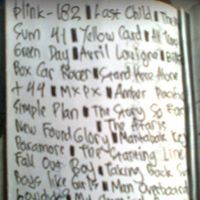 blink-182 ▮ Last Child ▮ The
Sum 41 ▮ Yellow Card ▮ All
Green Day ▮ Avril Lavigne ▮
Box Car Racer ▮ Stand Here Alone
+44 ▮ MxPx ▮ Amber Pacific
Simple Plan ▮ The Story So Far
New Found Glory ▮ The Ataris
Paramore ▮ The Starting Line
Fall Out Boy ▮ Taking Back
Boys like Girls ▮ Man Overboard
▮ My